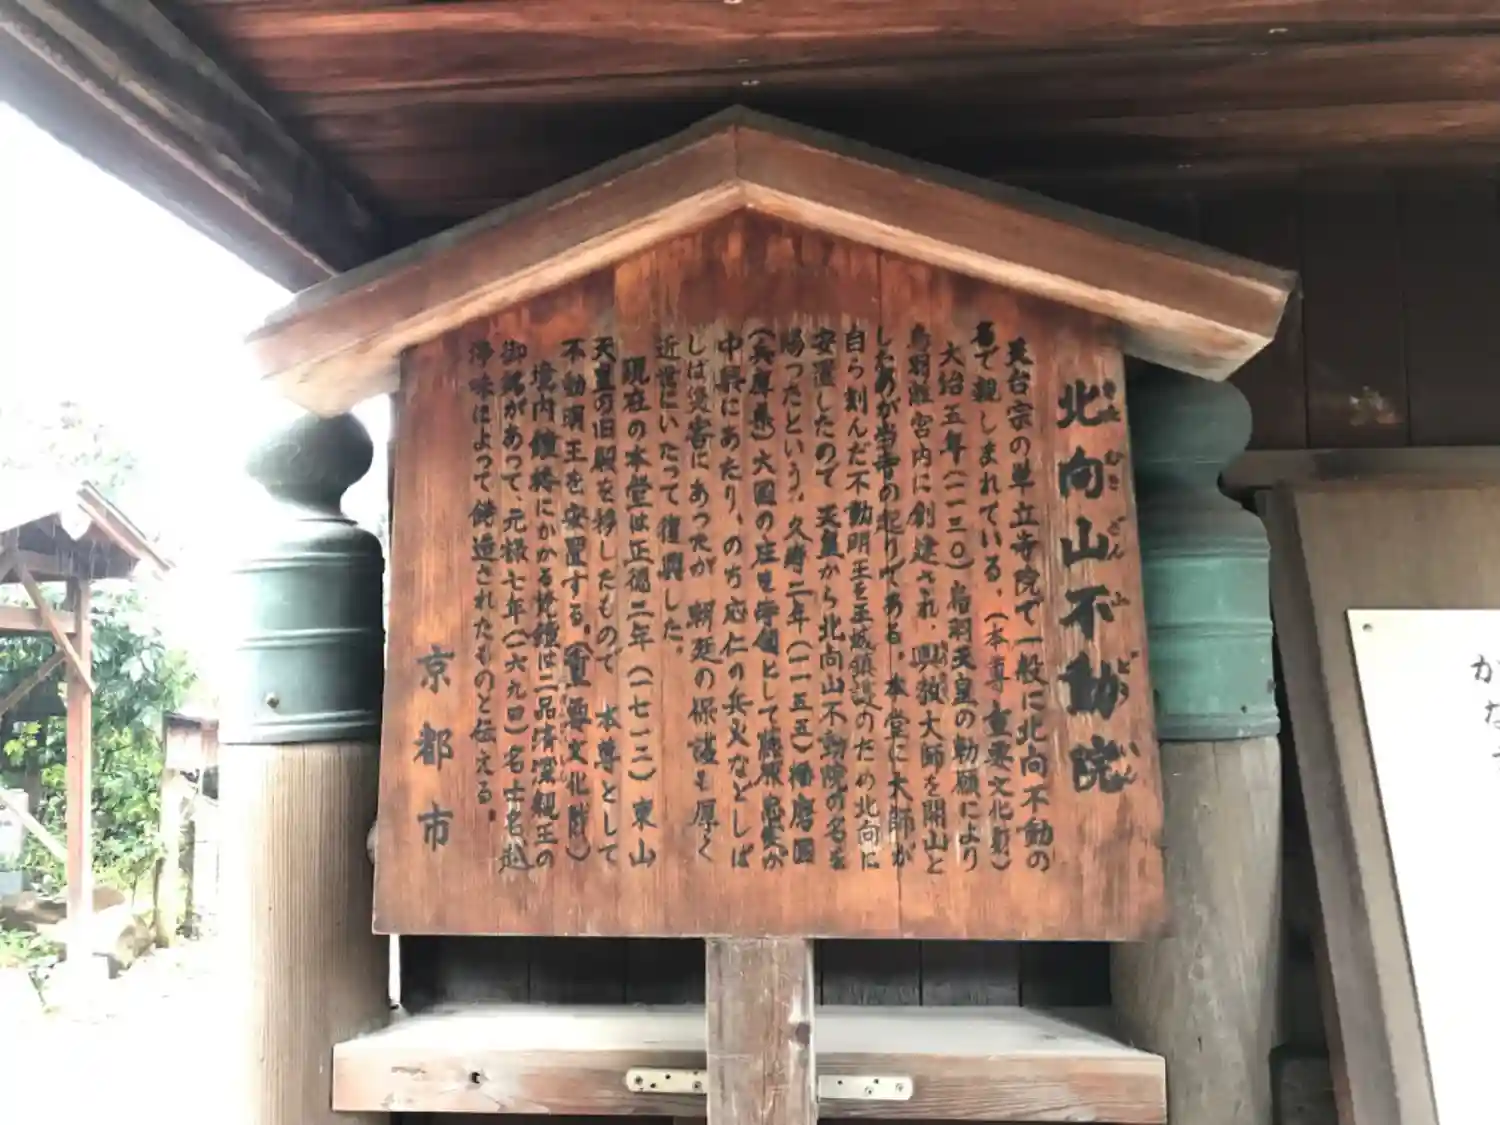 北向山不動院
きたむきざん山ふどういん
天台宗の単立寺院で一般に北向不動の
名で親しまれている。(本尊 重要文化財)
大治五年(一一三〇)鳥羽天皇の勅願により
鳥羽離宮内に創建され、興教大師を開山と
したのが当寺の起りである。本堂に大師が
自ら刻んだ不動明王を王城鎮護のため北向に
安置したので 天皇から北向山不動院の名を
賜ったという。久寿二年(一一五五)播磨国
(兵庫県)大国の庄を寺領として藤原忠実が
中興にあたり、のち応仁の兵火などしば
しば災害にあったが 朝廷の保護も厚く
近世にいたって復興した。
現在の本堂は正徳二年(一七一二)東山
天皇の旧殿を移したもので 本尊として
不動明王を安置する。(重要文化財)
境内鐘楼にかかる梵鐘は二品済深親王の
御銘があって、元禄七年(一六九四)名士名
浄味によって鋳造されたものと伝える。
京都市
か
な